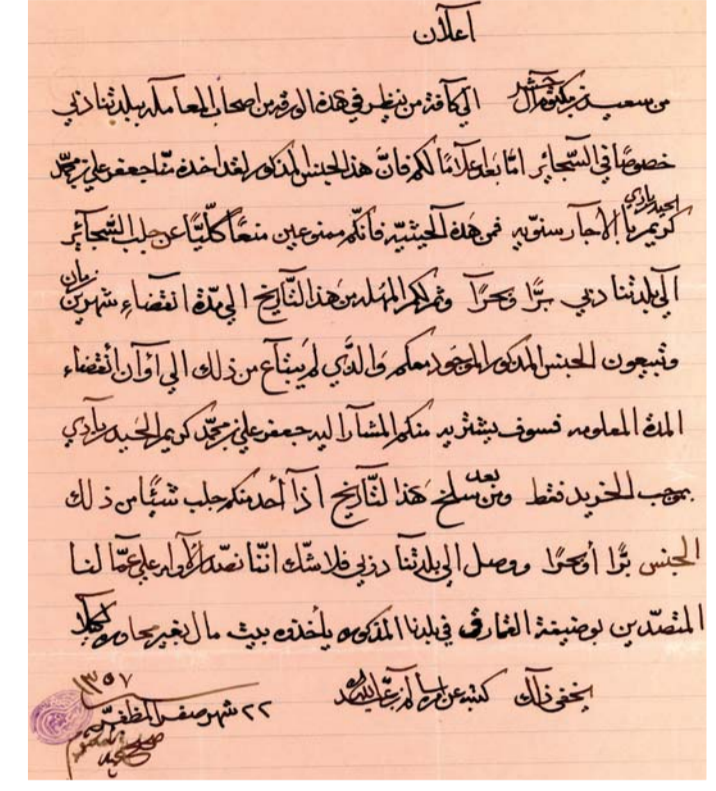 اعلان
من سعيد بن مكتوم آل حشر الى كآفة من ينظر في هذه الورقه من اصحاب المعامله ببلدتنا دبي
خصوصًا في السّجائر امّا بعد اعلامًا لكم فانّ هذ الجنس المذكور لقد اخذه منّا جعفر علي بن محمّد
كريم الحيدربادي بالاجار سنويه فمن هذه الحيثيّه فانّكم ممنوعين منعًا كلّيًا عن جلب السّجآئر
الى بلدتنا دبي برًّا وبحرًا ولكم المهله من هذ التّآريخ الى مدّة انقضاء شهرين زمان
وتبيعون الجنس المذكور الموجود معكم وَالذّي لم يبتاع من ذلك الى اوآن انقضاء
المدة المعلومه فسوف يشتريه منكم المشآر اليه جعفر علي بن محمّد كريم الحيدربادي
بموجب الخريد فقط ومن بعد سلخ هَذا لتّآريخ اذآ أحد منكم جلب شئًا من ذلك
الجنس برًّا أوبحرًا ووصل الى بلدتنا دبي فلا شّك انّنا نصدّر الأوامر على عمّا لنا
المتصدّين بوضيفة القمارق في بلدنا المذكوره يأخذوه بيت مال بغير محاوره كيلا
يخفى ذلك
٢٢ شهر صفر المظفّر ١٣٥٧